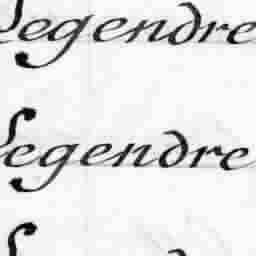 Legendre
Legendre